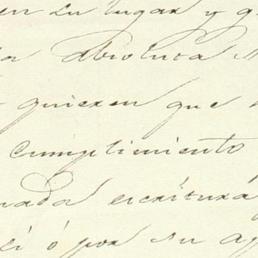 en su lugar y g
absoluta
quieren que
cumplimiento
nada escritura
si ó por su ap